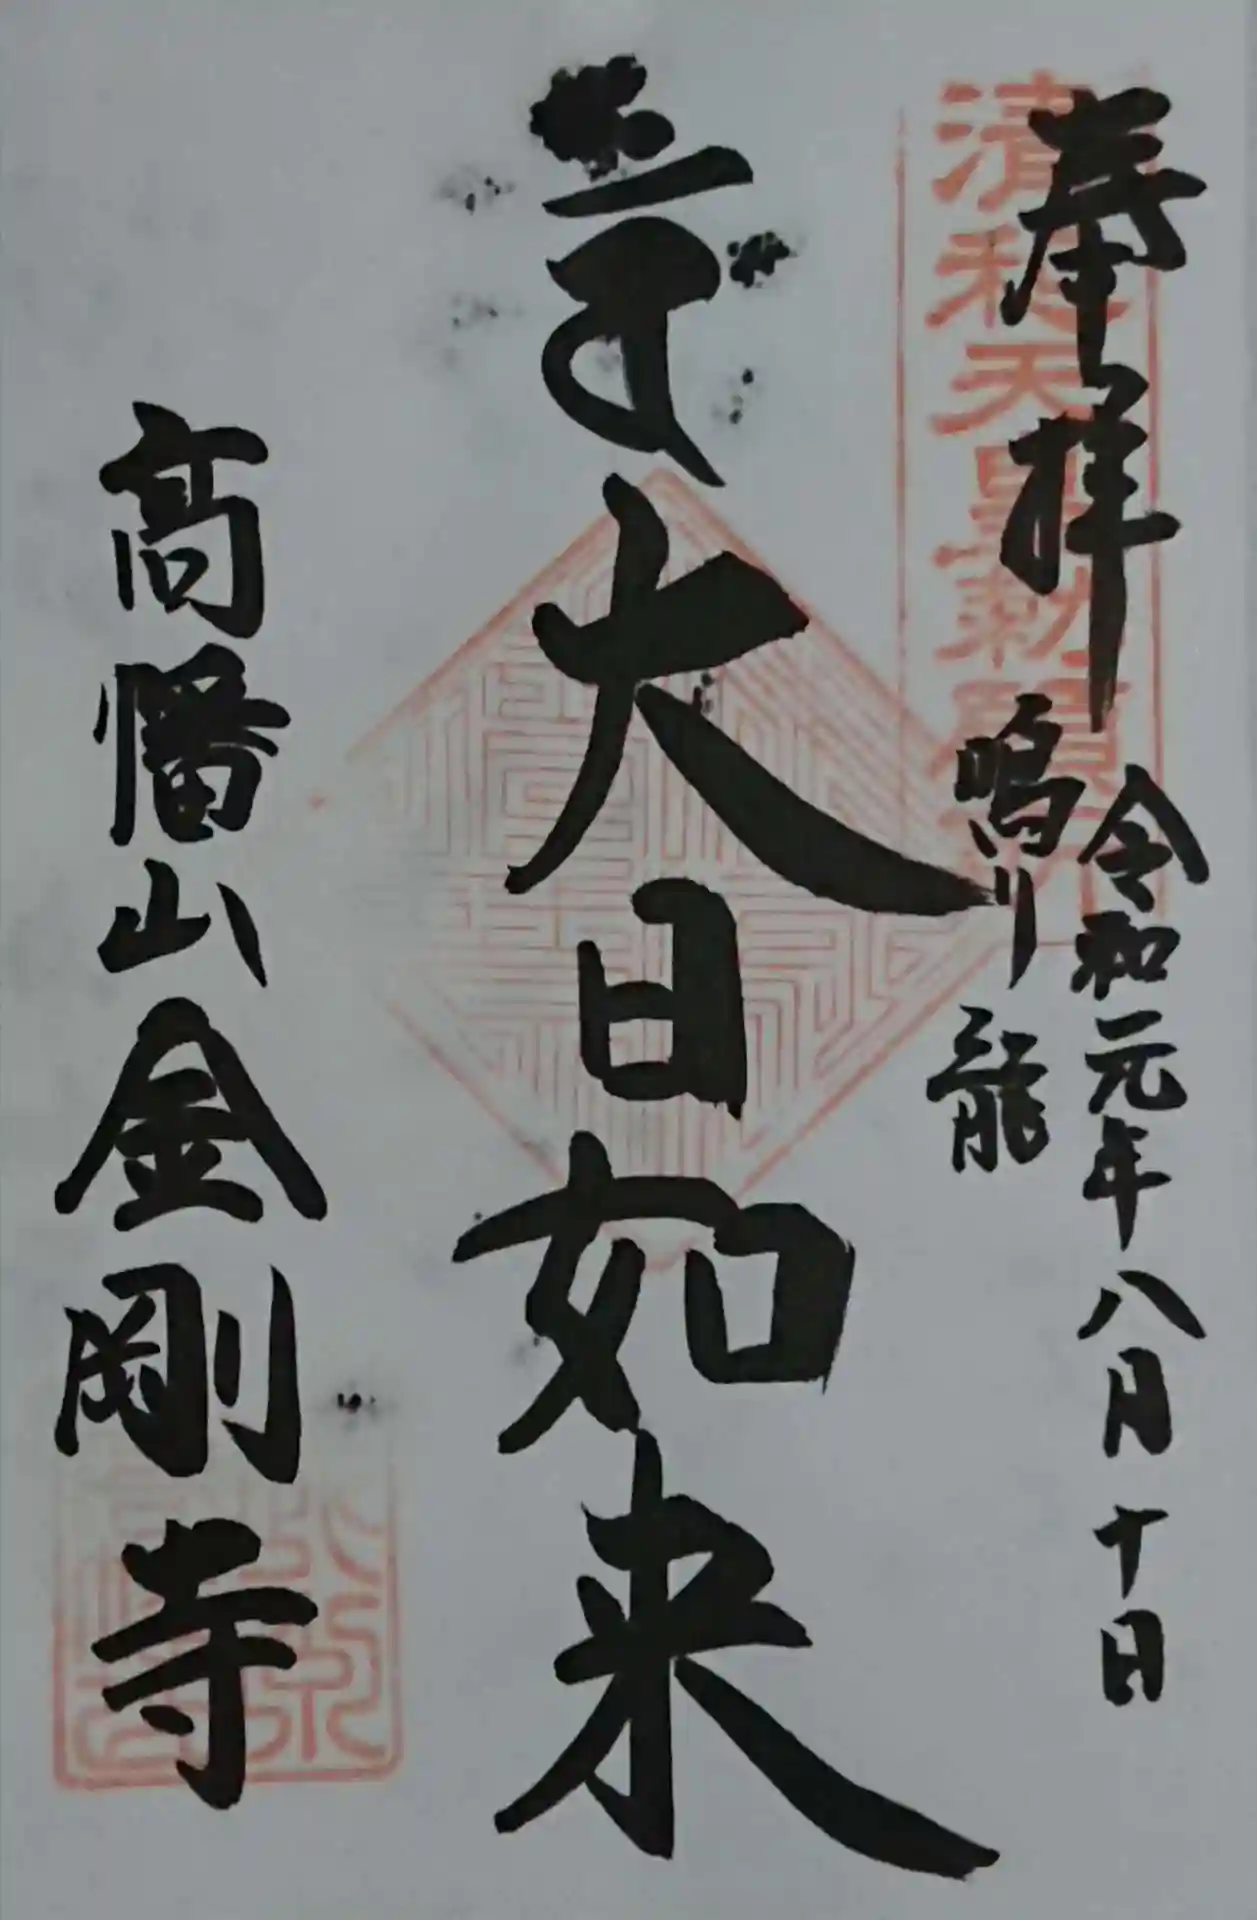 奉拝
令和元年八月十日
鳴り龍
清和天皇勅願所
大日如来
高幡山金剛寺